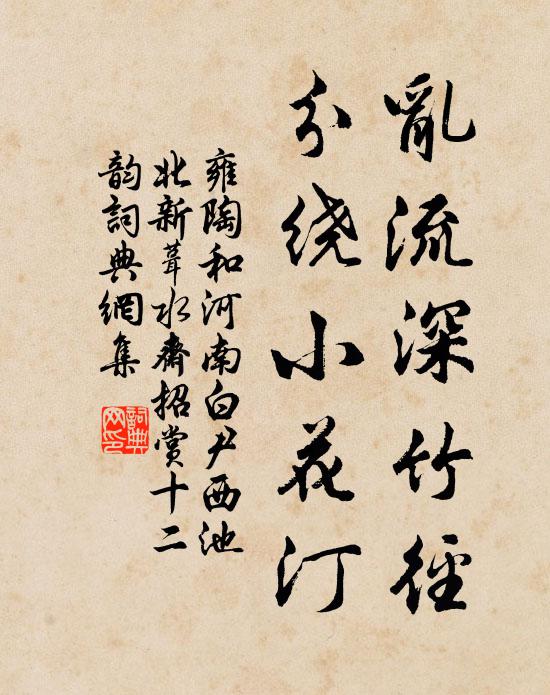 亂流深竹徑
分绕小花汀
雍陶和河南白尹西池
北新葺水齋招賞十二
韵詞典網集
詞典网印